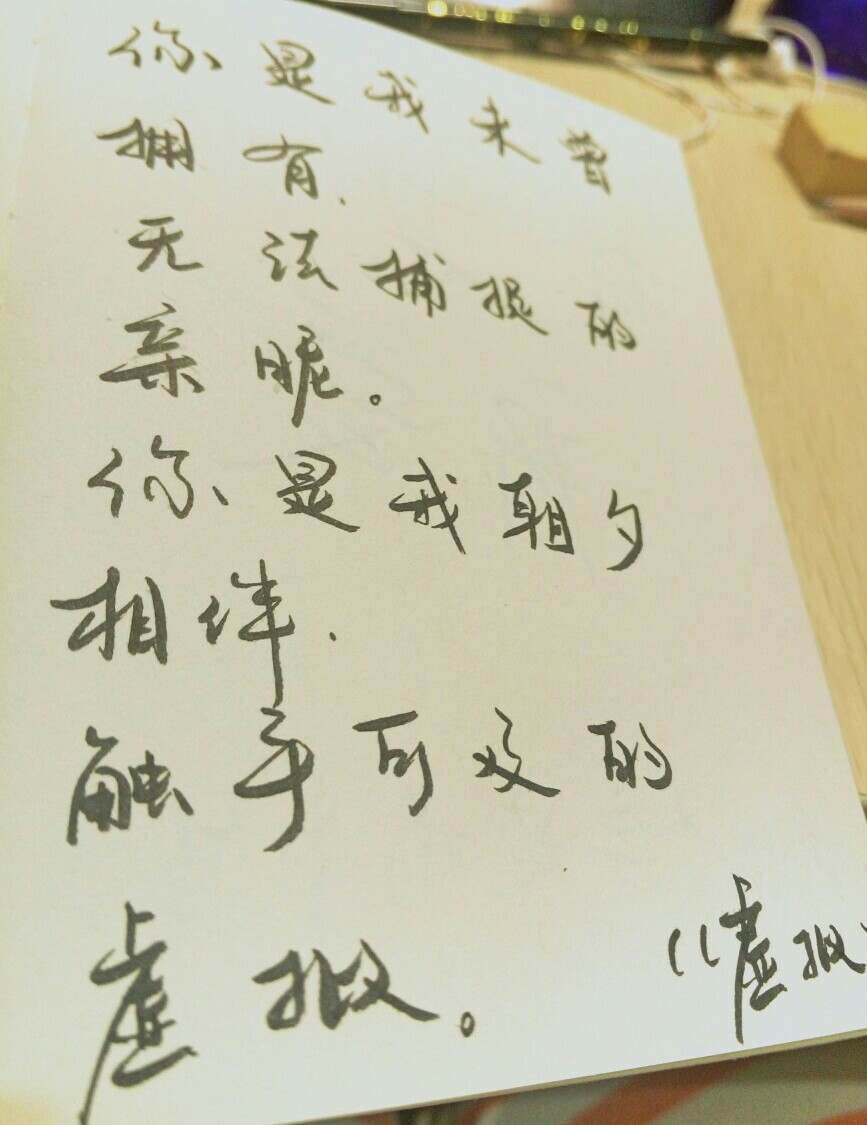 你是我未曾
拥有、
无法捕捉的
亲昵。
你是我朝夕
相伴、
触手可及的
虚拟。
《虚拟